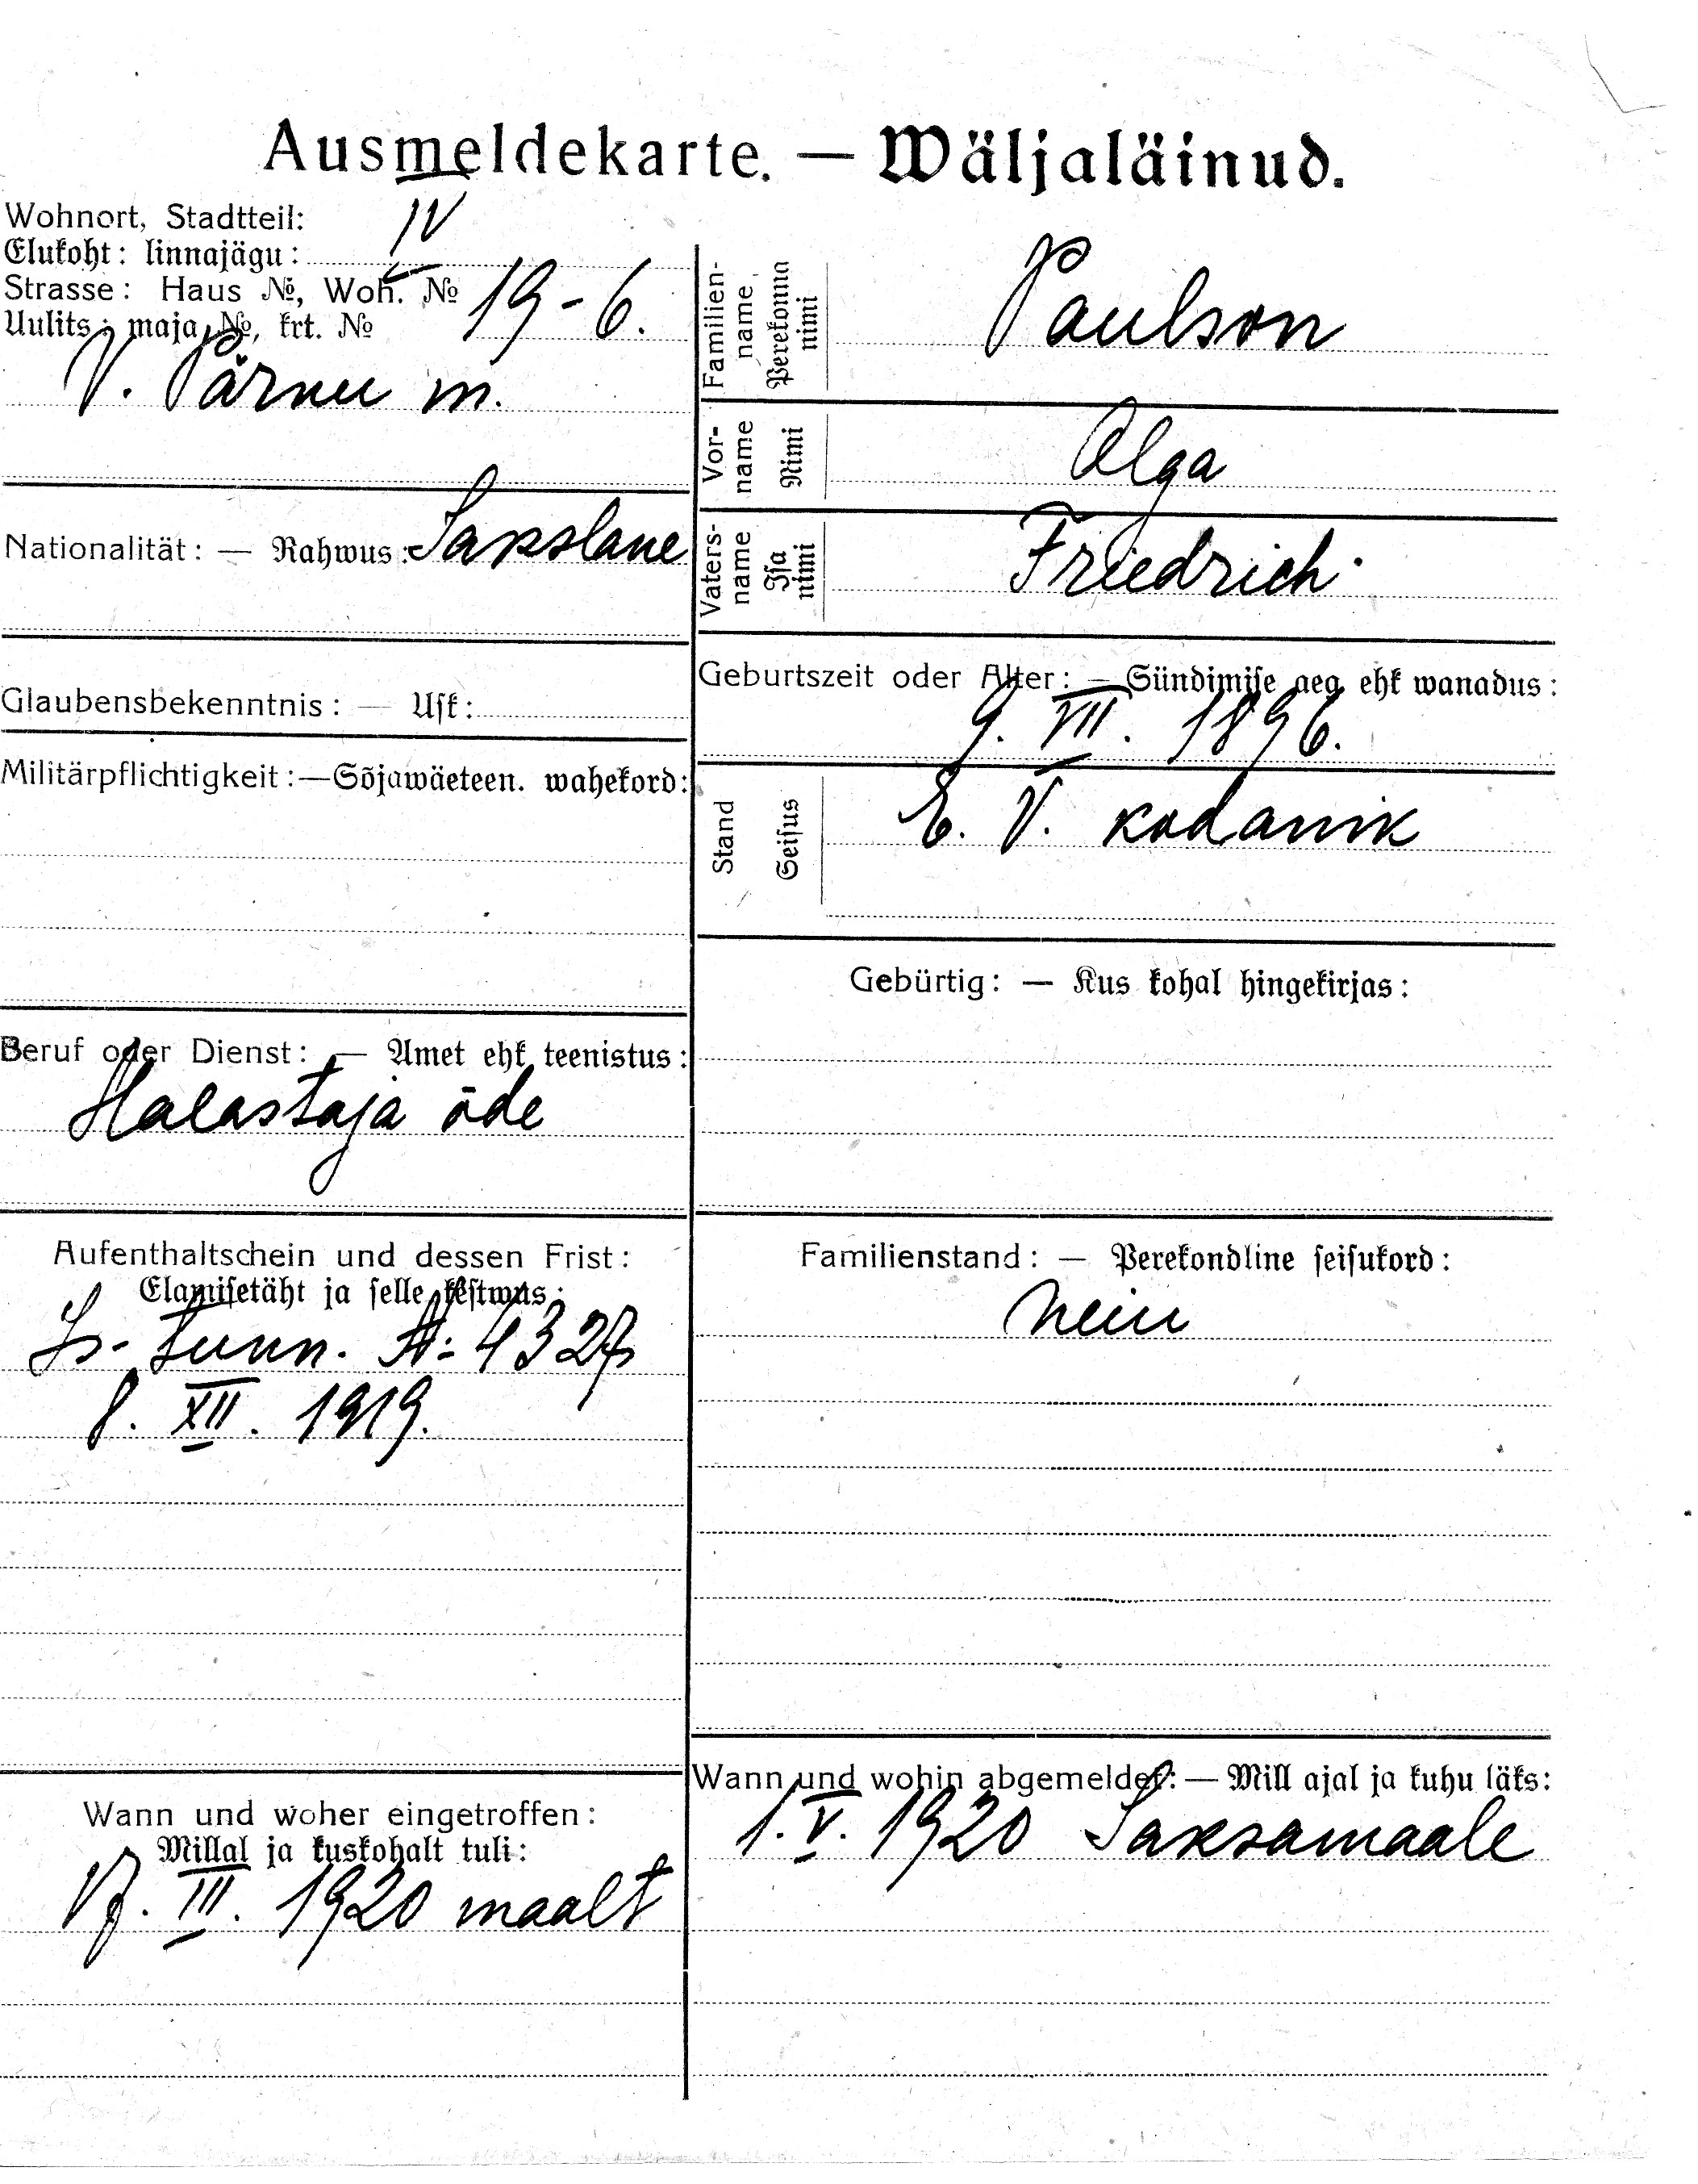 Ausmeldekarte. — Wäljaläinud.
Wohnort, Stadtteil:
Elukoht: linnajägu: IV
Strasse: Haus №, Woh. №
Uulits: maja №, krt. № 19-6.
V. Pärnu m.
Nationalität: — Rahwus: Sakslane
Glaubensbekenntnis: — Usk:
Militärpflichtigkeit: — Sõjawäeteen. wahekord:
Beruf oder Dienst: — Amet ehk teenistus:
Halastaja õde
Aufenthaltschein und dessen Frist:
Elamisetäht ja selle kestwus:
Is-tunn. №: 4327
8. XII. 1919.
Wann und woher eingetroffen:
Millal ja kuskohalt tuli:
17. III. 1920 maalt
Familien-
name
Perekonna
nimi
Paulson
Vor-
name
Nimi
Olga
Vaters-
name
Isa
nimi
Friedrich.
Geburtszeit oder Alter: — Sündimise aeg ehk wanadus:
9. VII. 1896.
Stand
Seisus
E. V. kodanik
Gebürtig: — Kus kohal hingekirjas:
Familienstand: — Perekondline seisukord:
neiu
Wann und wohin abgemeldet: — Mill ajal ja kuhu läks:
1. V. 1920 Saksamaale